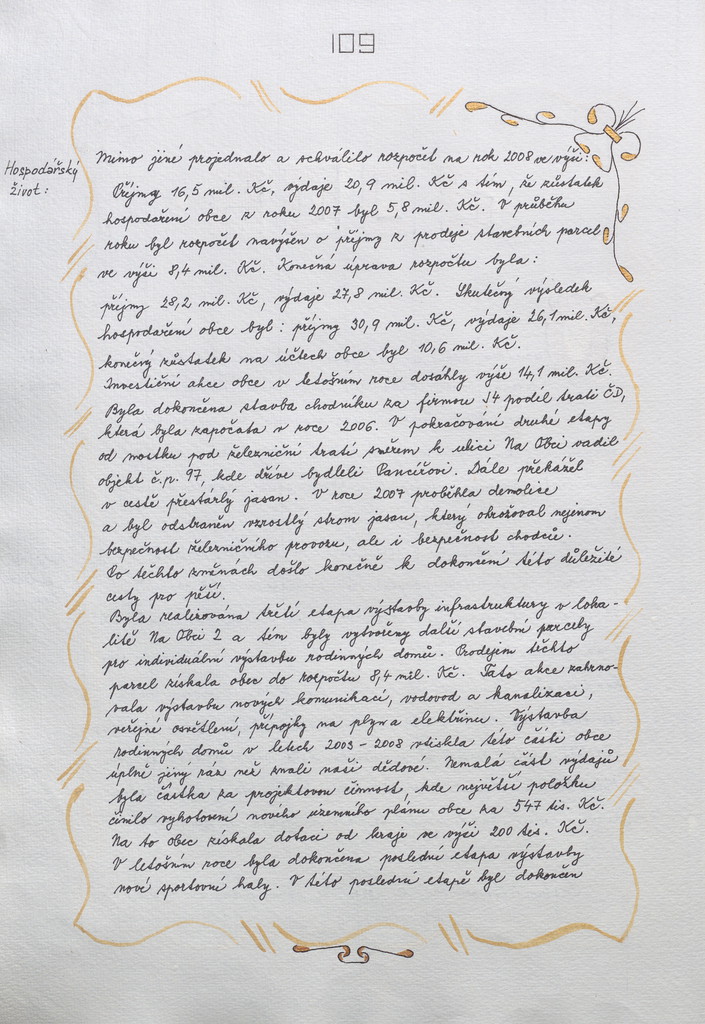 109
Hospodářský
život:
Mimo jiné projednalo a schválilo rozpočet na rok 2008 ve výši:
Příjmy 16,5 mil. Kč, výdaje 20,9 mil. Kč s tím, že zůstatek
hospodaření obce z roku 2007 byl 5,8 mil. Kč. V průběhu
roku byl rozpočet navýšen o příjmy z prodeje stavebních parcel
ve výši 8,4 mil. Kč. Konečná úprava rozpočtu byla:
příjmy 28,2 mil. Kč, výdaje 27,8 mil. Kč. Skutečný výsledek
hospodaření obce byl: příjmy 30,9 mil. Kč, výdaje 26,1 mil. Kč,
konečný zůstatek na účtech obce byl 10,6 mil. Kč.
Investiční akce obce v letošním roce dosáhly výše 14,1 mil. Kč.
Byla dokončena stavba chodníku za firmou J4 podél trati ČD,
která byla započata v roce 2006. V pokračování druhé etapy
od mostku pod železniční tratí směrem k ulici Na Obci vadil
objekt č.p. 97, kde dříve bydleli Pancířovi. Dále překážel
v cestě přestárlý jasan. V roce 2007 proběhla demolice
a byl odstraněn vzrostlý strom jasan, který ohrožoval nejenom
bezpečnost železničního provozu, ale i bezpečnost chodců.
Po těchto změnách došlo konečně k dokončení této důležité
cesty pro pěší.
Byla realizována třetí etapa výstavby infrastruktury v loka-
litě Na Obci 2 a tím byly vytvořeny další stavební parcely
pro individuální výstavbu rodinných domů. Prodejem těchto
parcel získala obec do rozpočtu 8,4 mil. Kč. Tato akce zahrno-
vala výstavbu nových komunikací, vodovod a kanalizaci,
veřejné osvětlení, přípojky na plyn a elektřinu. Výstavba
rodinných domů v letech 2003 - 2008 vtiskla této části obce
úplně jiný ráz než znali naši dědové. Nemalá část výdajů
byla částka za projektovou činnost, kde největší položku
činilo vyhotovení nového územního plánu obce za 547 tis. Kč.
Na to obec získala dotaci od kraje ve výši 200 tis. Kč.
V letošním roce byla dokončena poslední etapa výstavby
nové sportovní haly. V této poslední etapě byl dokončen